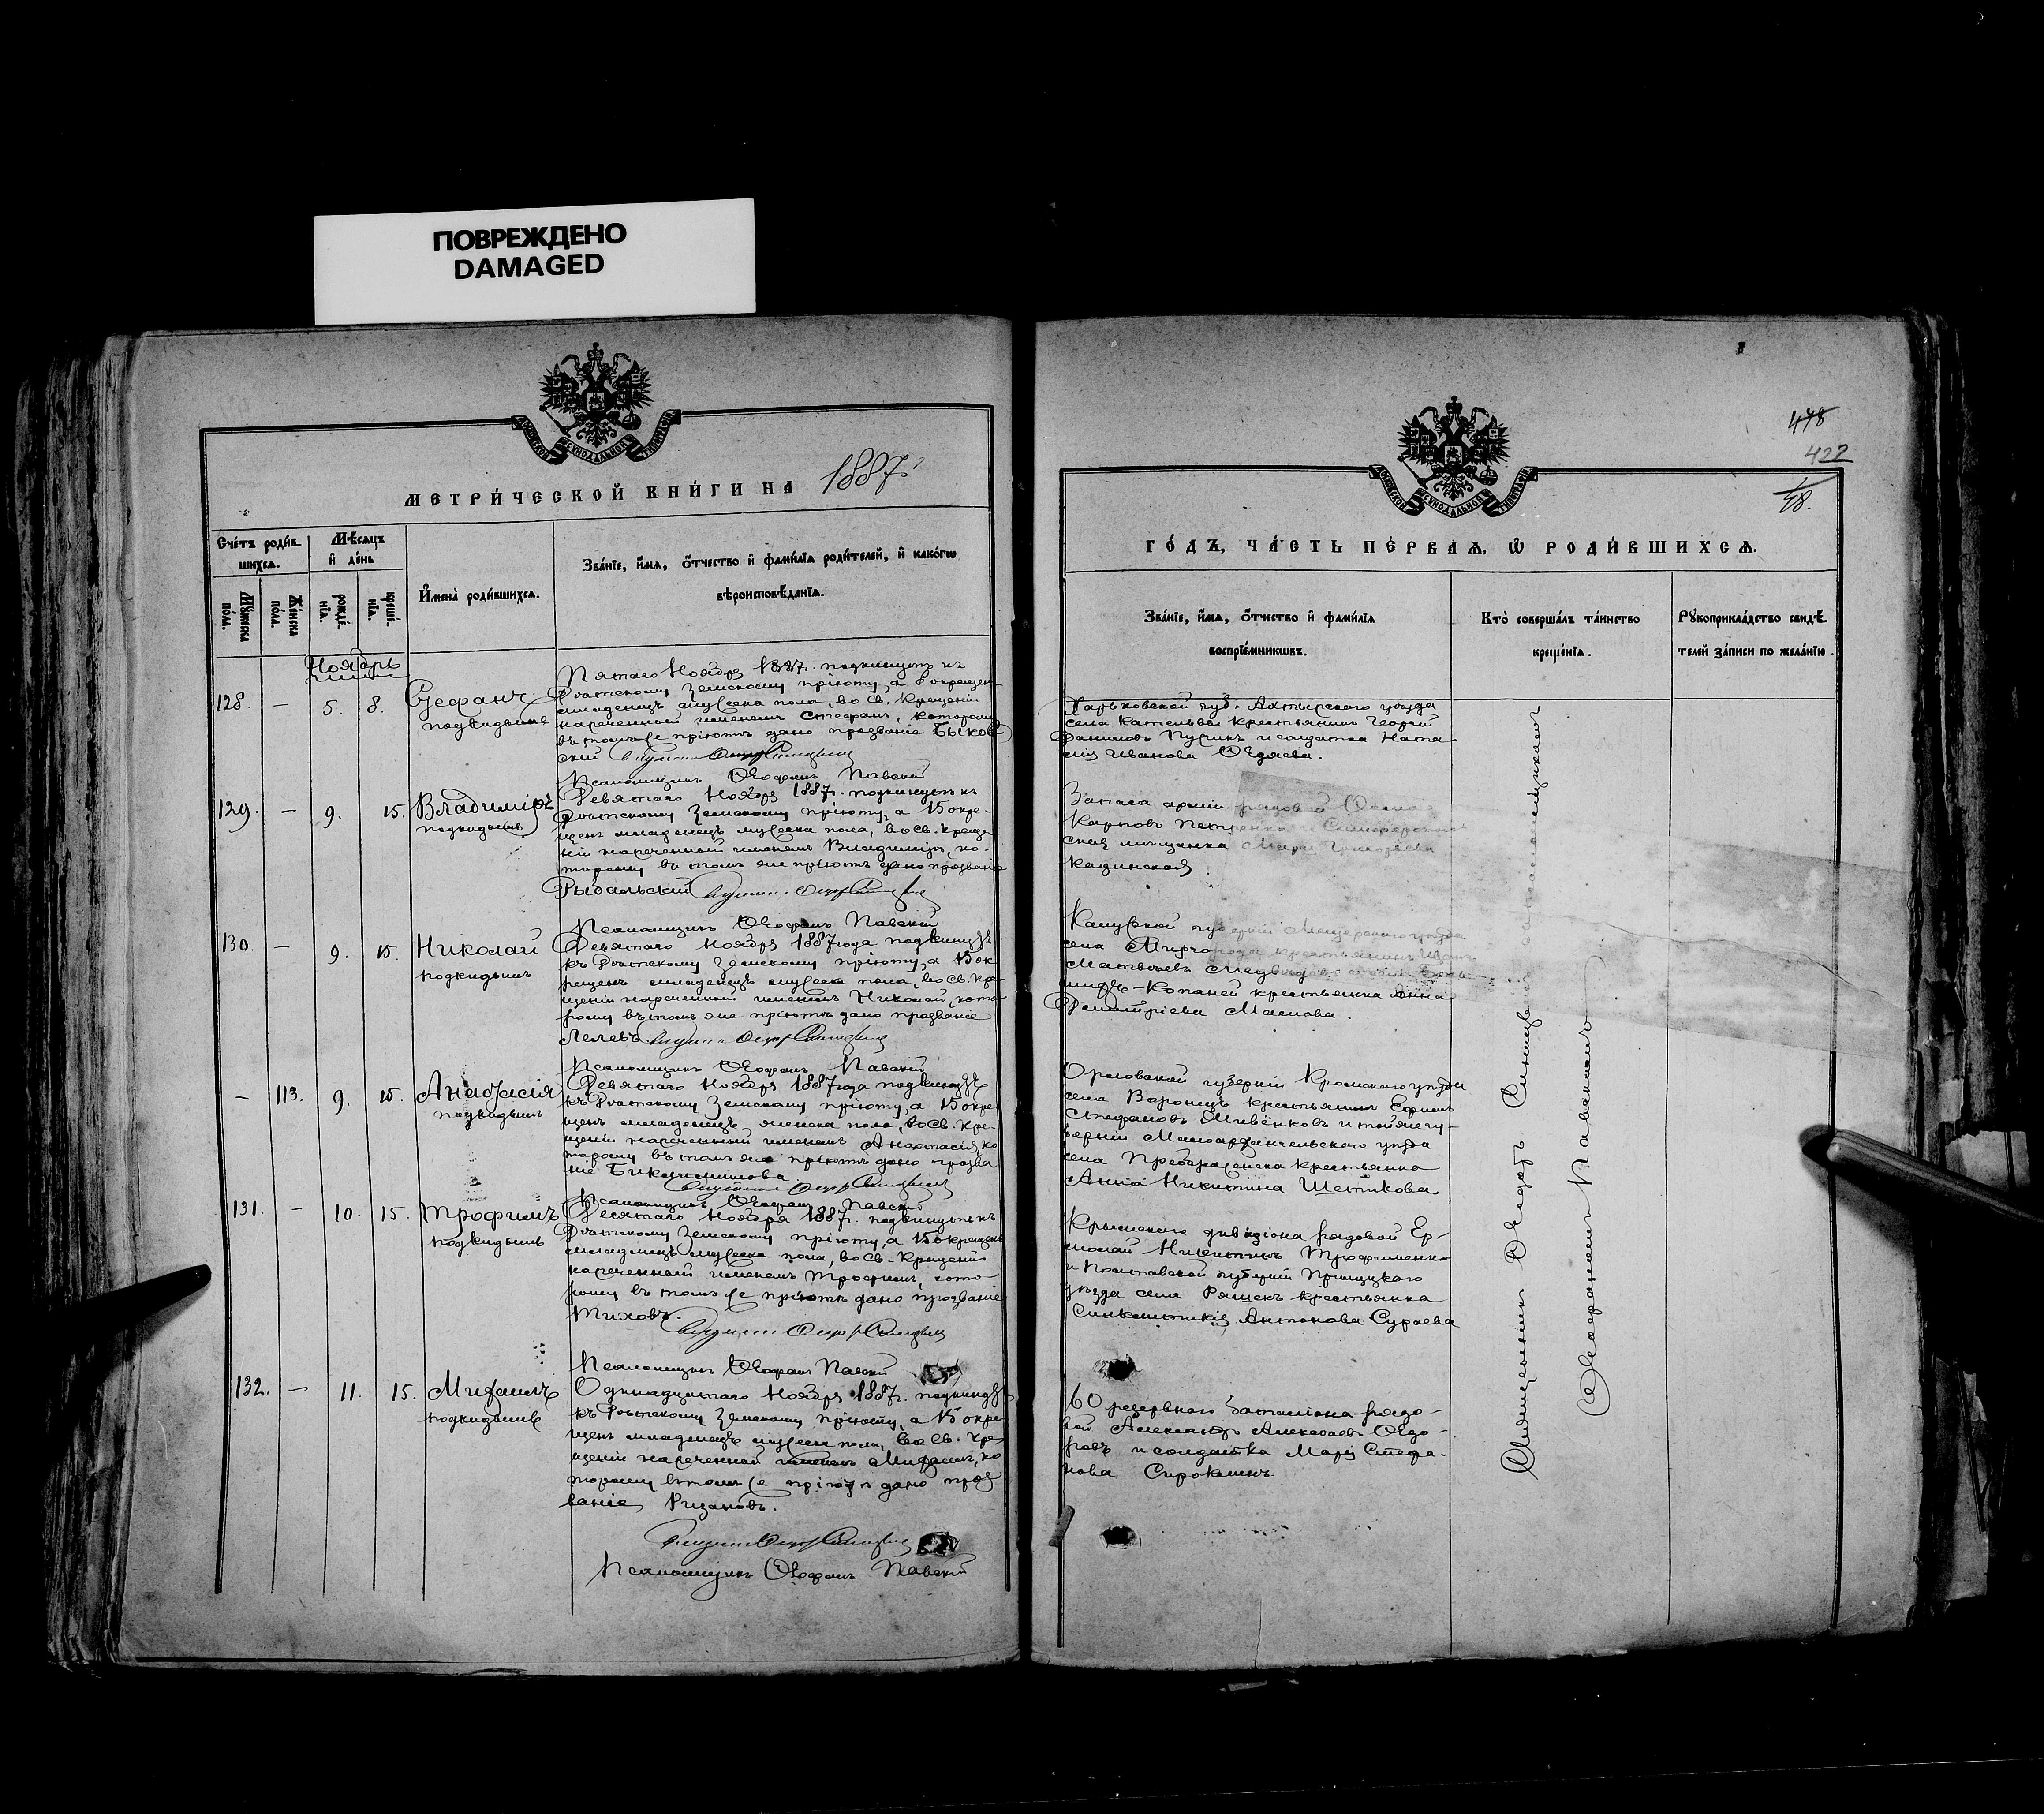 ПОВРЕЖДЕНО
DAMAGED
МЕТРИЧЕСКОЙ КНИГИ НА 1887
Счетъ родившихся.
Мѣсяцъ и день
Мужеска пола.
Женска пола.
рожденія.
крещенія.
Имена родившихся.
Званіе, имя, отчество и фамилія родителей, и какогω
вѣроисповѣданія.
Ноябрь
128. — 5. 8. Стефанъ
подкидышъ
Пятаго Ноября 1887г. подкинутъ къ
Дѣтскому Земскому пріюту, а 8 окрещенъ
младенецъ мужеска пола, во Св. Крещеніи
нареченный именемъ Стефанъ, которому
въ томъ же пріютѣ дано прозваніе Быков
скій
Псаломщикъ Ѳеофанъ Павскій
129. — 9. 15. Владиміръ
подкидышъ
Девятаго Ноября 1887г. подкинутъ къ
Дѣтскому Земскому пріюту, а 15 окре-
щенъ младенецъ мужеска пола, во Св. Креще-
ніи нареченный именемъ Владиміръ, ко-
торому въ томъ же пріютѣ дано прозваніе
Рыбальскій
Псаломщикъ Ѳеофанъ Павскій
130. — 9. 15. Николай
подкидышъ
Девятаго Ноября 1887года подкинутъ
къ Дѣтскому Земскому пріюту, а 15 ок
рещенъ младенецъ мужеска пола, во Св. Кре-
щеніи нареченный именемъ Николай, кото-
рому въ томъ же пріютѣ дано прозваніе
Лелевъ
Псаломщикъ Ѳеофанъ Павскій
— 113. 9. 15. Анастасія
подкидышъ
Девятаго Ноября 1887года подкинутъ
къ Дѣтскому Земскому пріюту, а 15 окре-
щенъ младенецъ женска пола, во Св. Кре-
щеніи нареченный именемъ Анастасія, ко
торому въ томъ же пріютѣ дано прозва
ніе
Псаломщикъ Ѳеофанъ Павскій
131. — 10. 15. Трофимъ
подкидышъ
Десятаго Ноября 1887г. подкинутъ къ
Дѣтскому Земскому пріюту, а 15 окрещенъ
младенецъ мужеска пола, во Св. Крещеніи
нареченный именемъ Трофимъ, кото-
рому въ томъ же пріютѣ дано прозваніе
Тиховъ.
Псаломщикъ Ѳеофанъ Павскій
132. — 11. 15. Михаилъ
подкидышъ
Одинадцатаго Ноября 1887г. подкинутъ
къ Дѣтскому Земскому пріюту, а 15 окре-
щенъ младенецъ мужеска пола, во Св. Кре
щеніи нареченный именемъ Михаилъ, ко
торому въ томъ же пріютѣ дано проз
ваніе Ризановъ.
Псаломщикъ Ѳеофанъ Павскій
478
422
48.
ГОДЪ, ЧАСТЬ ПЕРВАЯ, Ѡ РОДИВШИХСЯ.
Званіе, имя, отчество и фамилія
воспріемниковъ.
Кто совершалъ таинство
крещенія.
Рукоприкладство свидѣ-
телей записи по желанію.
Харьковской губ. Ахтырскаго уѣзда
села Котельвы крестьянинъ Георгій
Даниловъ и солдатка Ната-
лія Иванова
Запаса арміи рядовой
Карповъ Петренко и Симферополь
ская мѣщанка Марія Григорьева
Кащинская.
Калужской губерніи уѣзда
села крестьянинъ Иванъ
Матвѣевъ
крестьянка Анна
Димитріева Маслова.
Орловской губерніи Кромскаго уѣзда
села Воронецъ крестьянинъ Ефимъ
Стефановъ и той же гу-
берніи Малоархангельскаго уѣзда
села Преображенска крестьянка
Анна Никитина Шетикова.
Крымскаго дивизіона рядовой Ер-
молай Никитинъ Трофименко
и Полтавской губерніи Прилуцкаго
уѣзда села крестьянка
Синклитикія Антонова Сураева
60 резервнаго баталіона рядо-
вой Александръ Алексѣевъ Ѳедо-
ровъ и солдатка Марія Стефа-
нова
Священникъ Ѳеодоръ съ псаломщикомъ
Ѳеофаномъ Павскимъ